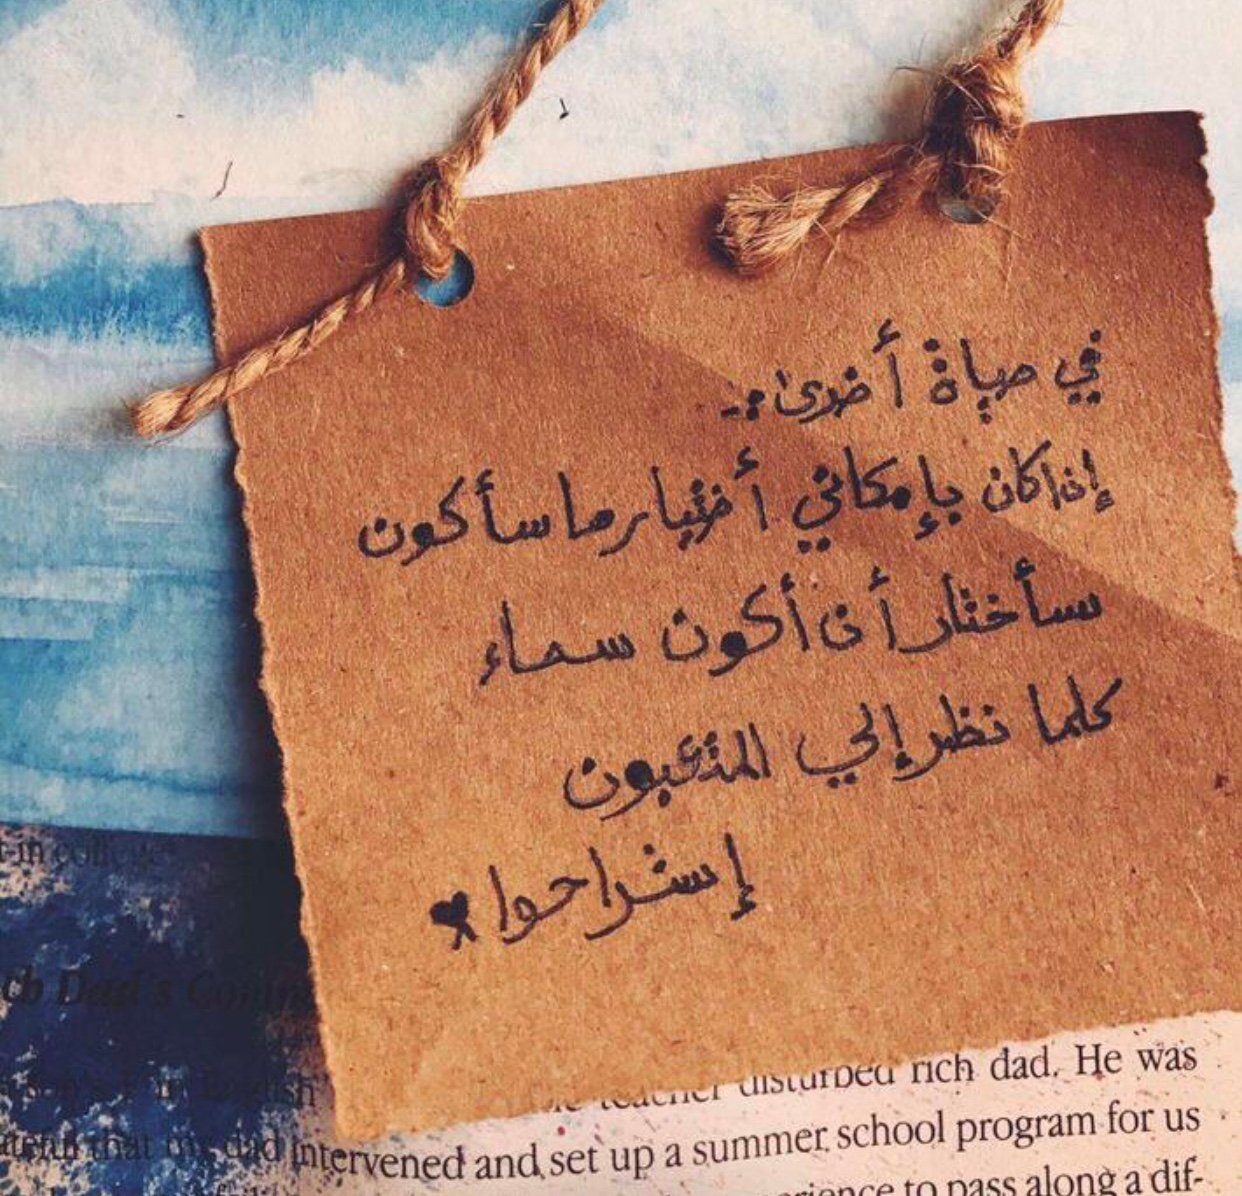 في حياة أخرى..
إذا كان بإمكاني أختيار ما سأكون
سأختار أن أكون سماء
كلما نظر إلي المتعبون
إستراحوا
t-in college
Dad's
disturbed rich dad. He was
that my dad intervened and set up a summer school program for us
to pass along a dif-